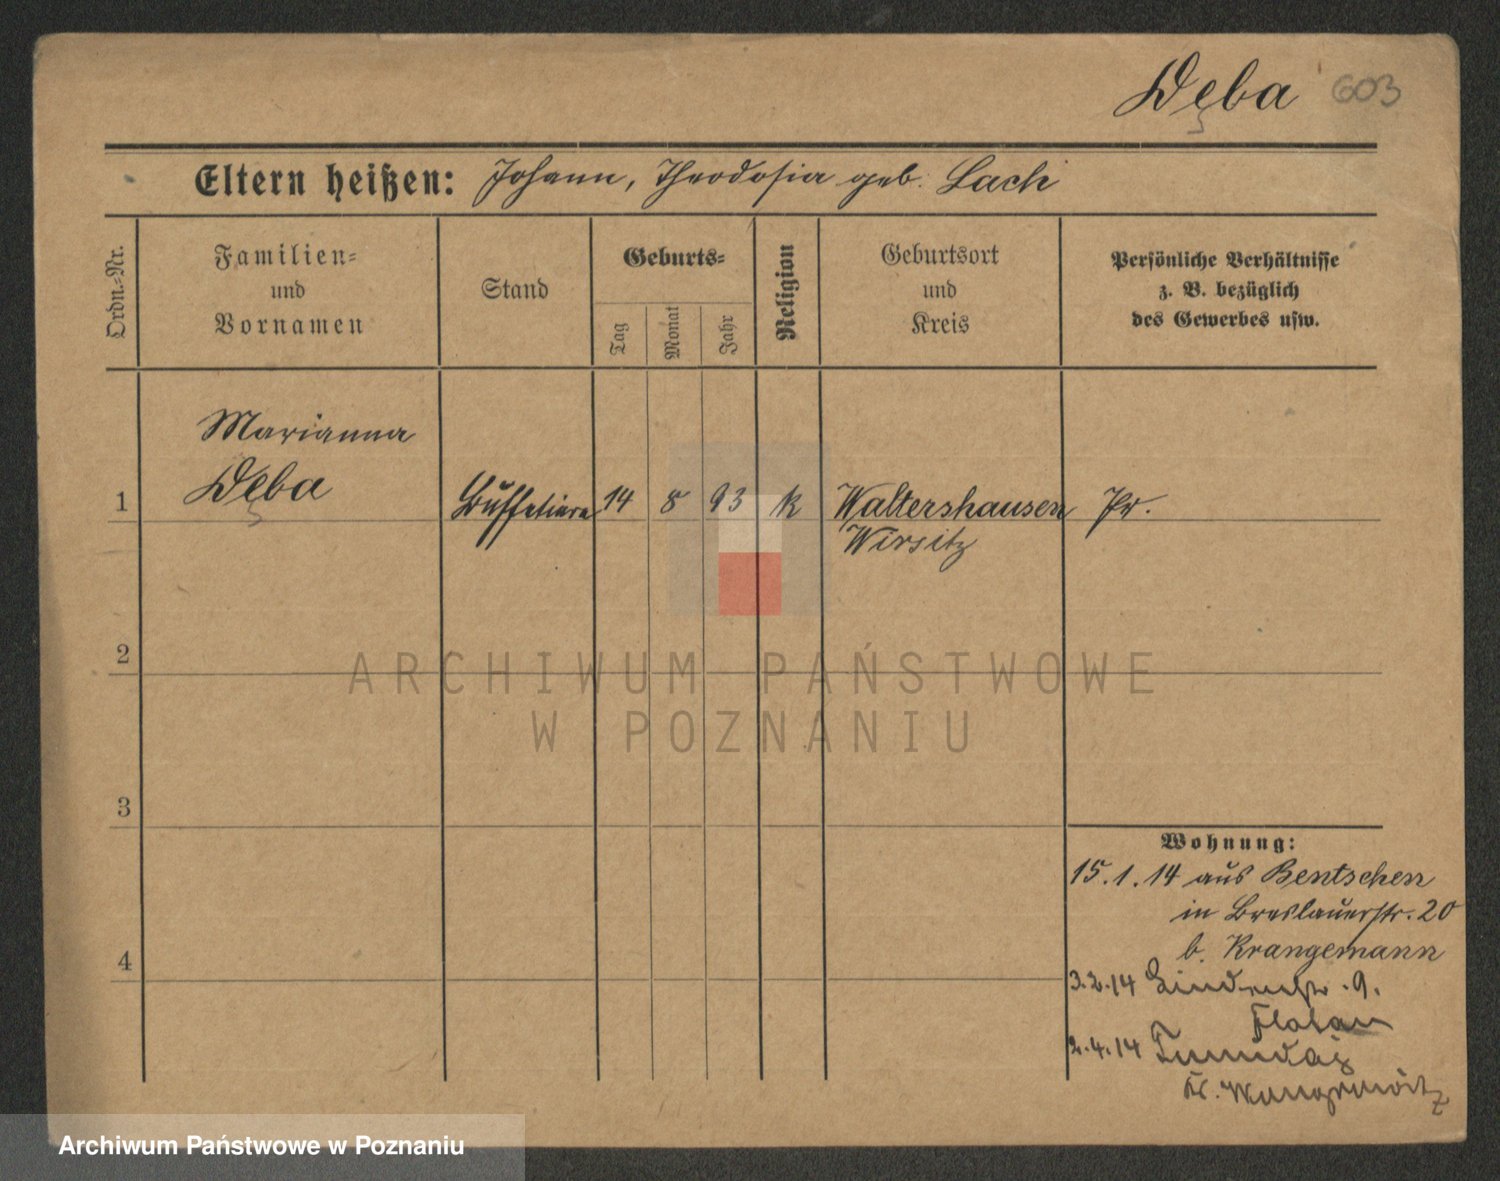 Dęba 603
Eltern heißen: Johann, Theodosia geb. Lach
Ordn.-Nr.
Familien-
und
Vornamen
Stand
Geburts-
Tag
Monat
Jahr
Religion
Geburtsort
und
Kreis
Persönliche Verhältnisse
z. B. bezüglich
des Gewerbes usw.
Marianna
1 Dęba Buffetiere 14 8 93 k Waltershausen Pr.
Wirsitz
2
ARCHIWUM PAŃSTWOWE
W POZNANIU
3
Wohnung:
15.1.14 aus Bentschen
in Breslauerstr. 20
b. Krangemann
4
3.2.14 Lindenstr. 9.
2.4.14
Kr. Wongrowitz
Archiwum Państwowe w Poznaniu